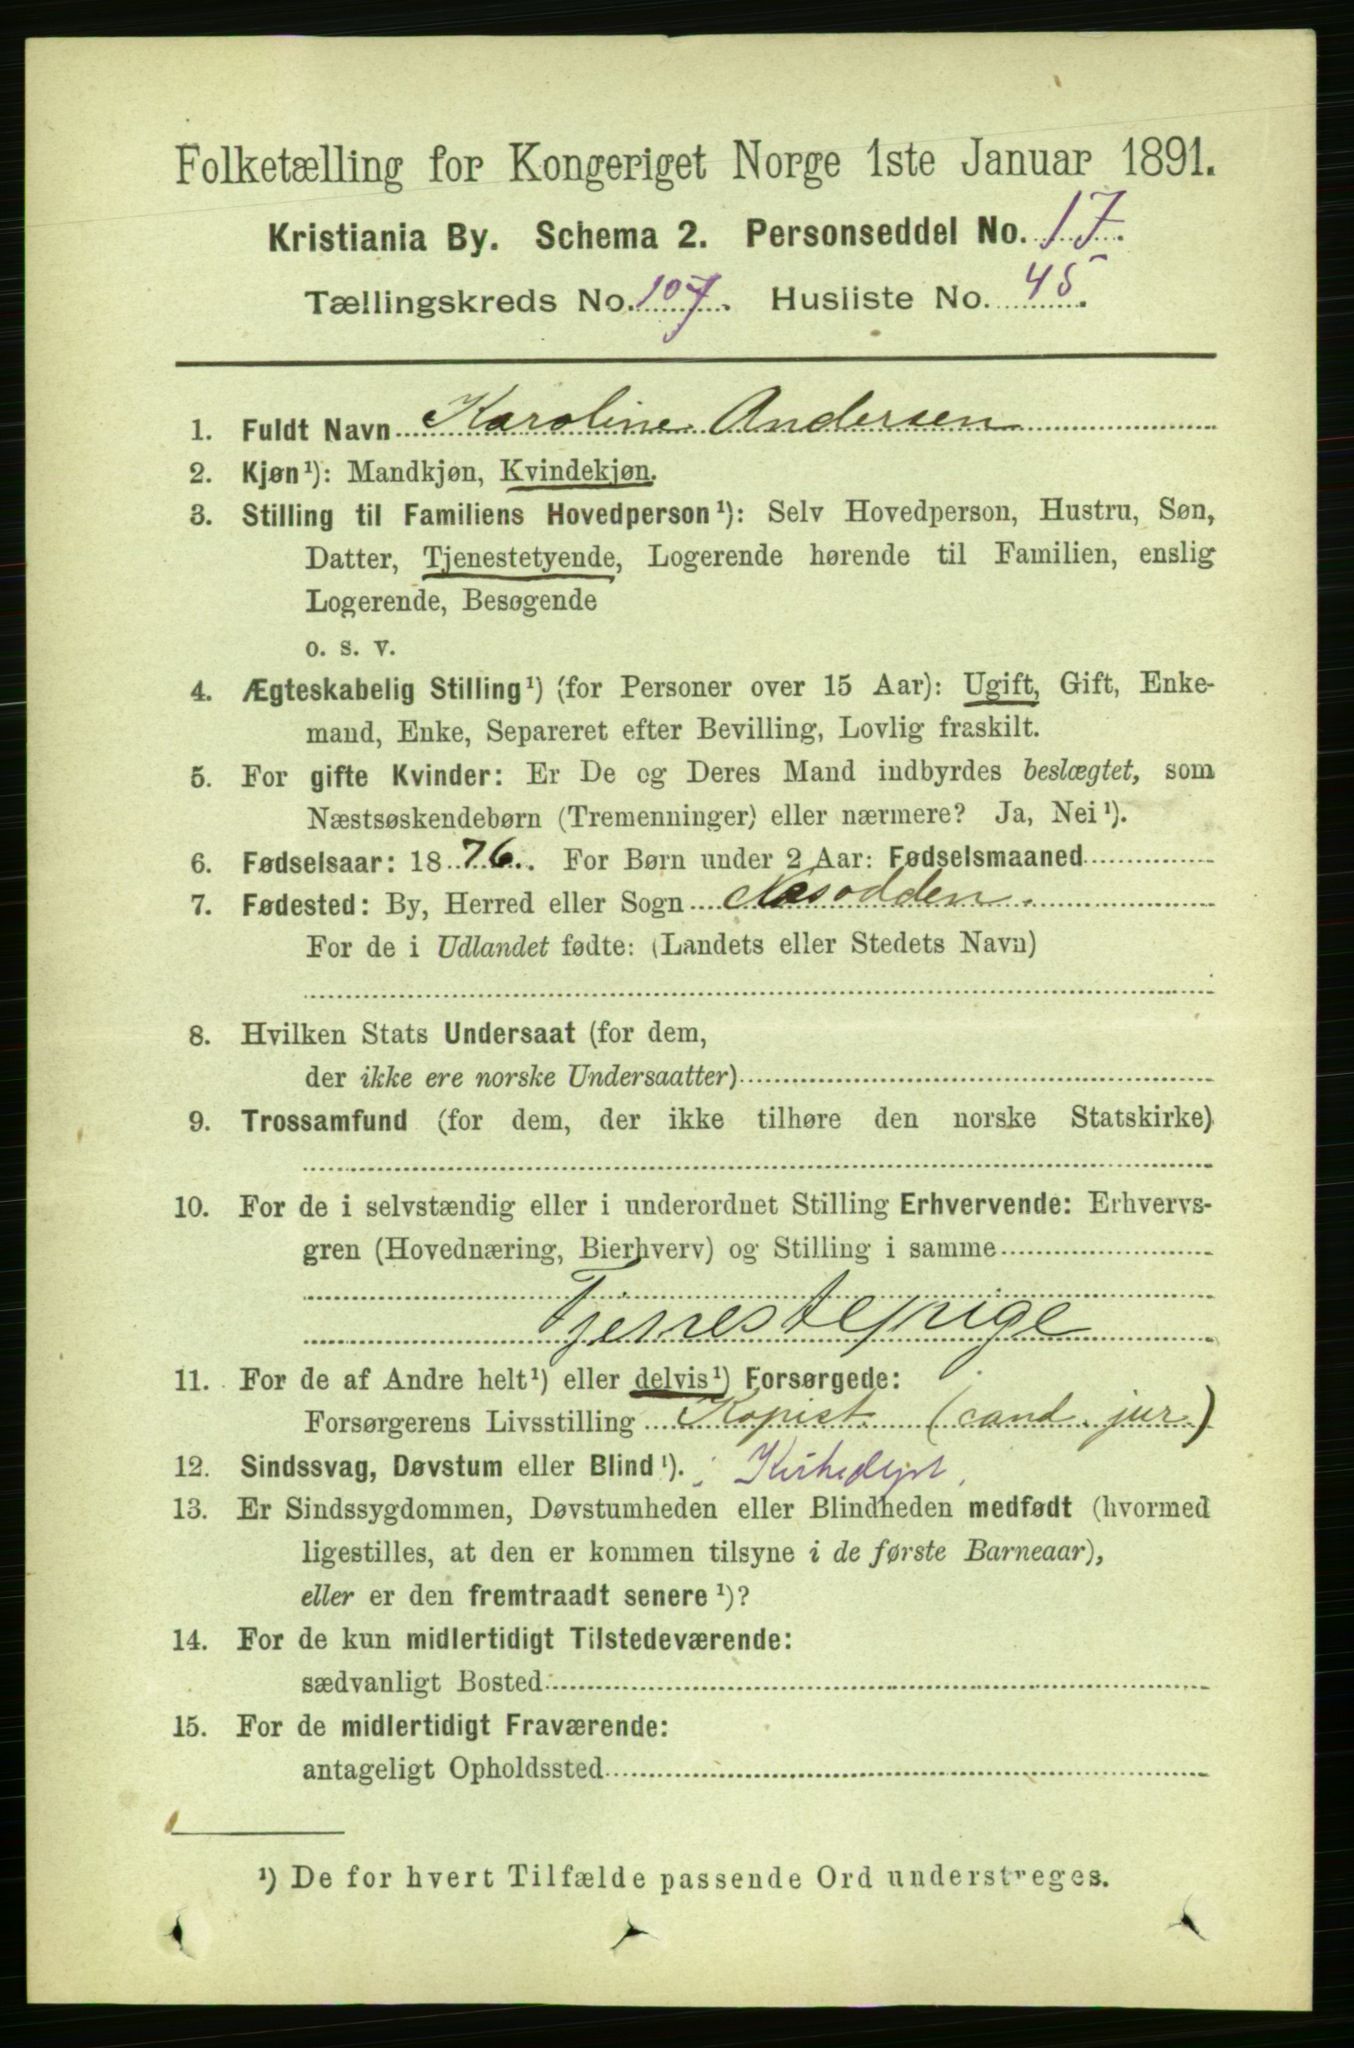 Folketælling for Kongeriget Norge 1ste Januar 1891.
Kristiania By. Schema 2. Personseddel No. 17.
Tællingskreds No. 107. Husliste No. 45.
1. Fuldt Navn Karoline Andersen
2. Kjøn¹): Mandkjøn, Kvindekjøn.
3. Stilling til Familiens Hovedperson¹): Selv Hovedperson, Hustru, Søn,
Datter, Tjenestetyende, Logerende hørende til Familien, enslig
Logerende, Besøgende
o. s. v.
4. Ægteskabelig Stilling¹) (for Personer over 15 Aar): Ugift, Gift, Enke-
mand, Enke, Separeret efter Bevilling, Lovlig fraskilt.
5. For gifte Kvinder: Er De og Deres Mand indbyrdes beslægtet, som
Næstsøskendebørn (Tremenninger) eller nærmere? Ja, Nei¹).
6. Fødselsaar: 1876. For Børn under 2 Aar: Fødselsmaaned
7. Fødested: By, Herred eller Sogn Næsodden.
For de i Udlandet fødte: (Landets eller Stedets Navn)
8. Hvilken Stats Undersaat (for dem,
der ikke ere norske Undersaatter)
9. Trossamfund (for dem, der ikke tilhøre den norske Statskirke)
10. For de i selvstændig eller i underordnet Stilling Erhvervende: Erhvervs-
gren (Hovednæring, Bierhverv) og Stilling i samme
Tjenestepige
11. For de af Andre helt¹) eller delvis¹) Forsørgede:
Forsørgerens Livsstilling Kopist (cand. jur)
12. Sindssvag, Døvstum eller Blind¹).
13. Er Sindssygdommen, Døvstumheden eller Blindheden medfødt (hvormed
ligestilles, at den er kommen tilsyne i de første Barneaar),
eller er den fremtraadt senere¹)?
14. For de kun midlertidigt Tilstedeværende:
sædvanligt Bosted
15. For de midlertidigt Fraværende:
antageligt Opholdssted
¹) De for hvert Tilfælde passende Ord understreges.